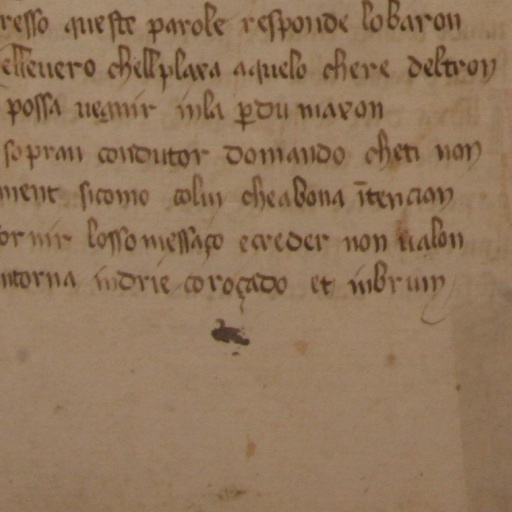 resso queste parole responde lo baron
ell levero chell plaxa a quelo che re del tron
possa vegnir in la perdu maxon
sopran condutor domando che ti non
ment sicomo colui che a bona ītencion
ornir losso messaço e creder non valon
ntorna indrie coroçado et inbrun